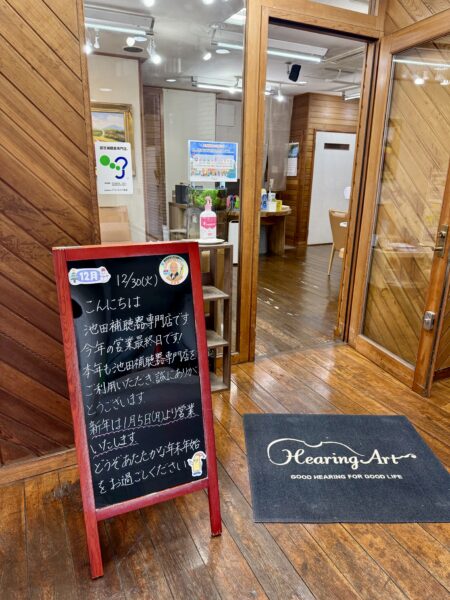 認定補聴器専門店
12月
12/30(火)
こんにちは
池田補聴器専門店です
今年の営業最終日です!
本年も池田補聴器専門店を
ご利用いただき誠にありが
とうございます
新年は1月5日(月)より営業
いたします
どうぞあたたかな年末年始
をお過ごしください
Hearing Art
GOOD HEARING FOR GOOD LIFE